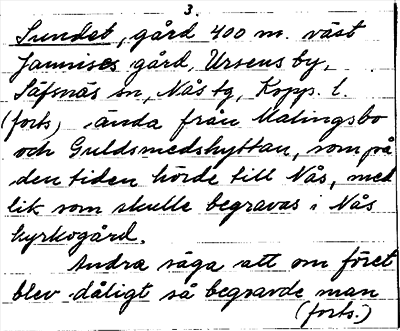 3.
Sundet, gård 400 m. väst
Jannises gård, Ursens by,
Säfsnäs sn, Nås tg, Kopp. l.
(forts) ända från Malingsbo
och Guldsmedshyttan, som på
den tiden hörde till Nås, med
lik som skulle begravas i Nås
kyrkogård.
Andra säga att om föret
blev dåligt så begravde man
(forts.)